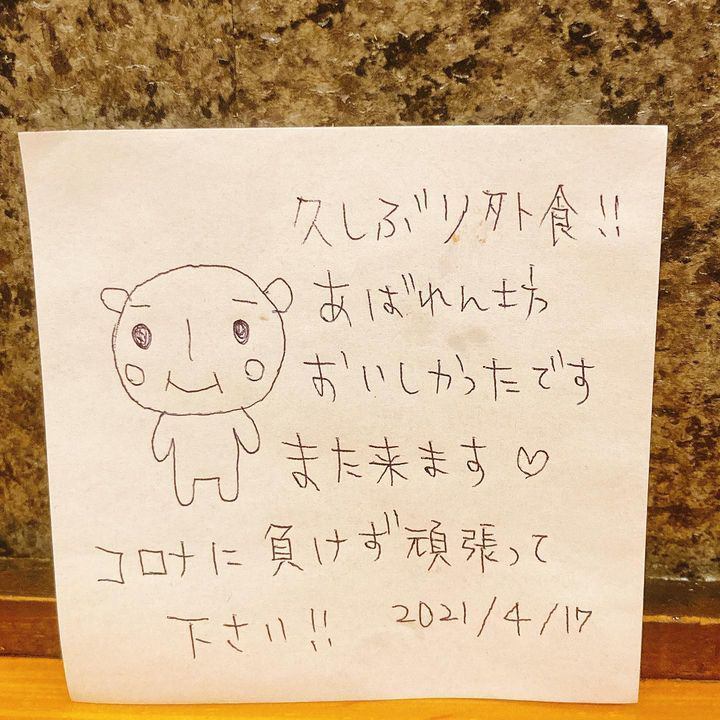 久しぶり外食!!
あばれん坊
おいしかったです
また来ます♡
コロナに負けず頑張って
下さい!!
2021/4/17